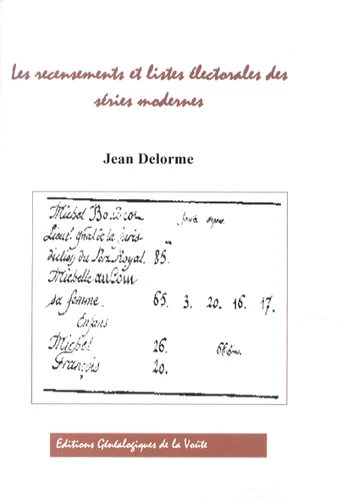 Les recensements et listes électorales des
séries modernes
Jean Delorme
Michel
Lieut. gñal de la juris
diction du Royal. 85.
Michelle
sa femme. 65. 3. 20. 16. 17.
Enfans
Michel 26.
François 20.
Editions Généalogiques de la Voûte